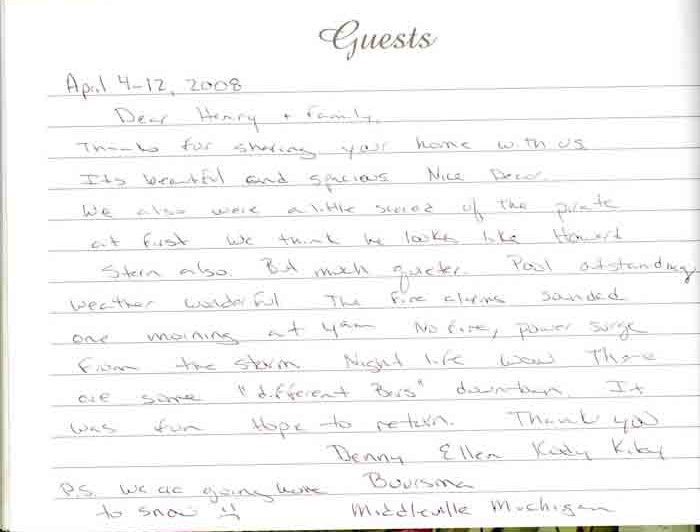 Guests
April 4-12, 2008
Dear Henry + Family,
Thanks for sharing your home with us
Its beautiful and spacious Nice Decor
We also were a little scared of the pirate
at first We think he looks like Howard
Stern also. But much quieter. Pool outstanding
weather wonderful The fire alarms sounded
one morning at 4am No fire, power surge
from the storm Night life wow There
are some "different Bars" downtown. It
was fun Hope to return. Thank you
Denny Ellen Kody Kiley
P.S. We are going home Bouwsma
to snow Middleville Michigan